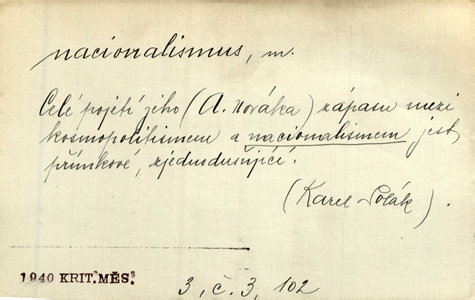 nacionalismus, m.
Celé pojetí jeho (A. Nováka) zápasu mezi
kosmopolitismem a nacionalismem jest
přímkové, zjednodušující.
(Karel Polák).
1940 KRIT. MĚS.
3, č. 3, 102